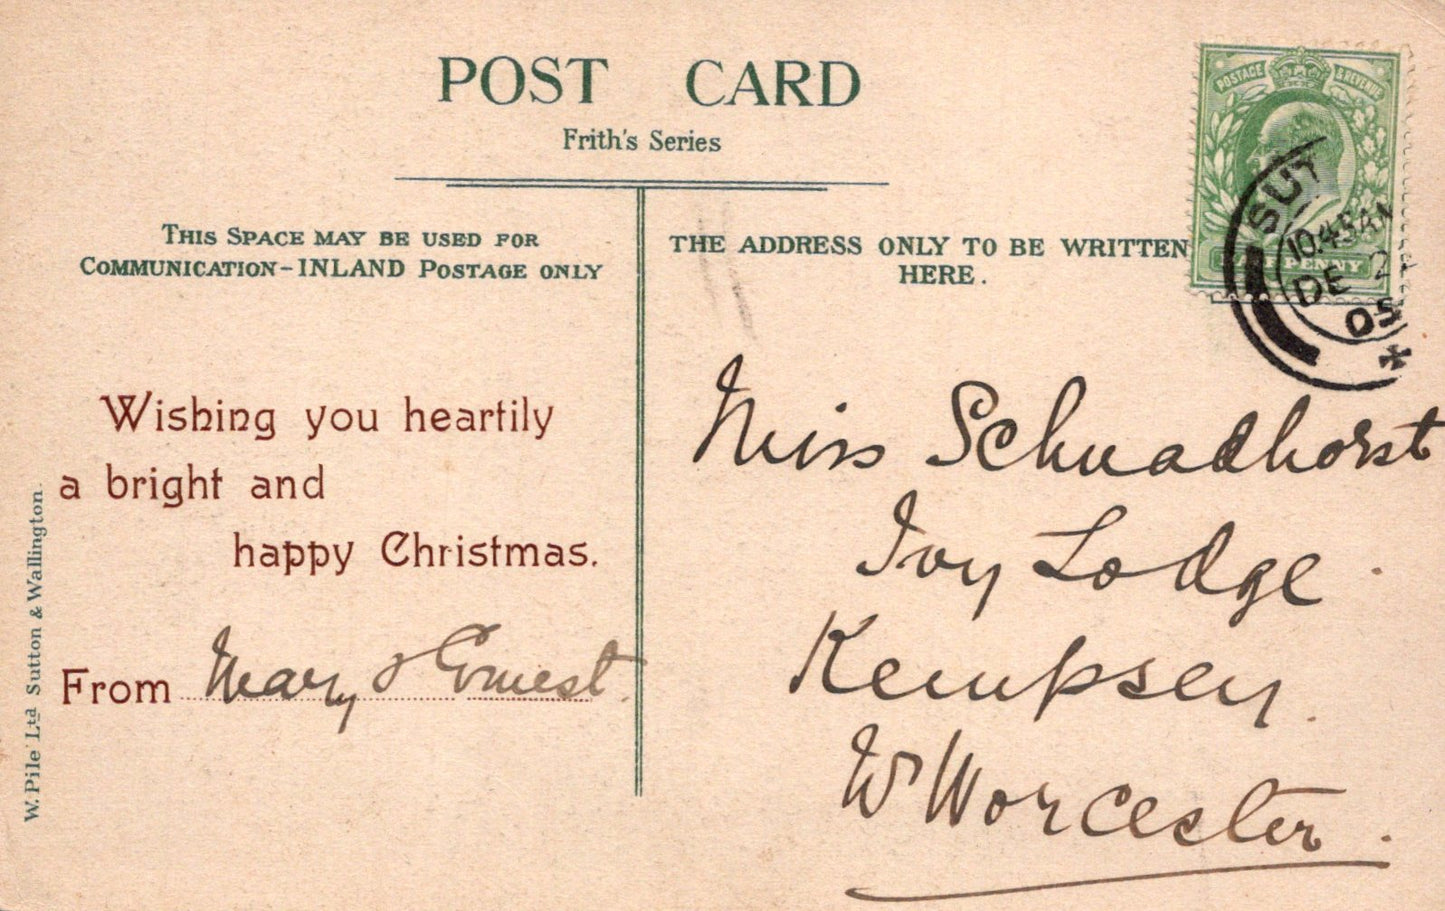 POST CARD
Frith's Series
THIS SPACE MAY BE USED FOR
COMMUNICATION-INLAND POSTAGE ONLY
THE ADDRESS ONLY TO BE WRITTEN
HERE.
POSTAGE & REVENUE
HALFPENNY
SUT
10.45AM
DE 2
05
Wishing you heartily
a bright and
happy Christmas.
From Mary & Ernest.
W. Pile Ltd Sutton & Wallington.
Miss Schnadhorst
Ivy Lodge
Kempsey.
Nr Worcester.